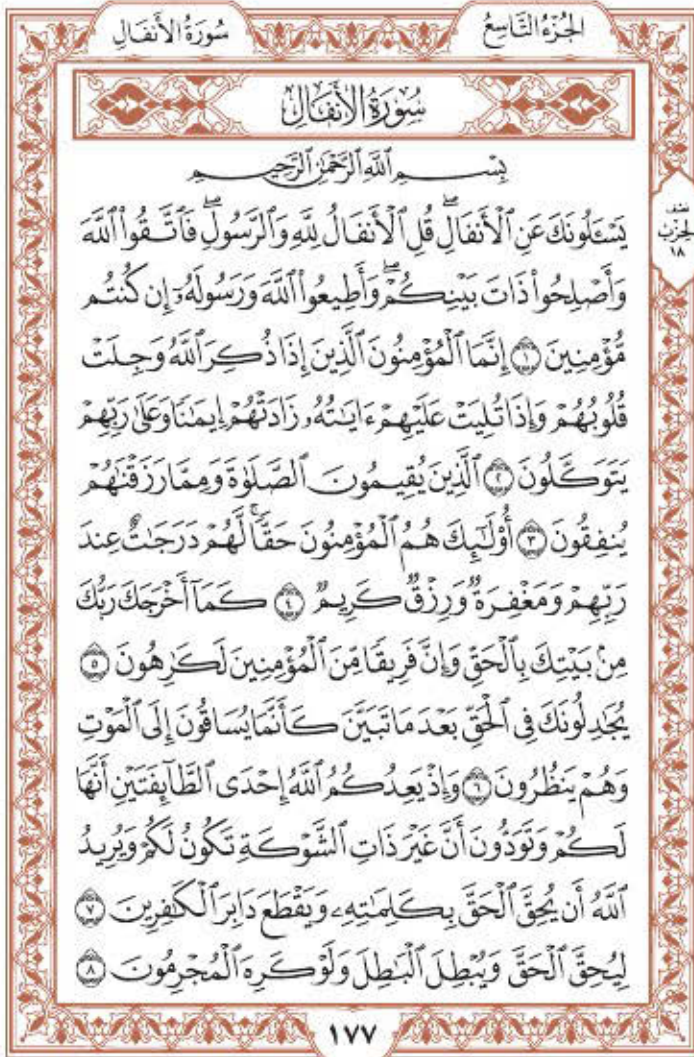 الجُزْءُ التَّاسِعُ
سُورَةُ الأَنفَالِ
سُورَةُ الأَنفَالِ
بِسْمِ ٱللَّهِ ٱلرَّحْمَٰنِ ٱلرَّحِيمِ
يَسْـَٔلُونَكَ عَنِ ٱلْأَنفَالِۖ قُلِ ٱلْأَنفَالُ لِلَّهِ وَٱلرَّسُولِۖ فَٱتَّقُوا۟ ٱللَّهَ
وَأَصْلِحُوا۟ ذَاتَ بَيْنِكُمْۖ وَأَطِيعُوا۟ ٱللَّهَ وَرَسُولَهُۥٓ إِن كُنتُم
مُّؤْمِنِينَ ١ إِنَّمَا ٱلْمُؤْمِنُونَ ٱلَّذِينَ إِذَا ذُكِرَ ٱللَّهُ وَجِلَتْ
قُلُوبُهُمْ وَإِذَا تُلِيَتْ عَلَيْهِمْ ءَايَٰتُهُۥ زَادَتْهُمْ إِيمَٰنًا وَعَلَىٰ رَبِّهِمْ
يَتَوَكَّلُونَ ٢ ٱلَّذِينَ يُقِيمُونَ ٱلصَّلَوٰةَ وَمِمَّا رَزَقْنَٰهُمْ
يُنفِقُونَ ٣ أُو۟لَٰٓئِكَ هُمُ ٱلْمُؤْمِنُونَ حَقًّاۚ لَّهُمْ دَرَجَٰتٌ عِندَ
رَبِّهِمْ وَمَغْفِرَةٌ وَرِزْقٌ كَرِيمٌ ٤ كَمَآ أَخْرَجَكَ رَبُّكَ
مِنۢ بَيْتِكَ بِٱلْحَقِّ وَإِنَّ فَرِيقًا مِّنَ ٱلْمُؤْمِنِينَ لَكَٰرِهُونَ ٥
يُجَٰدِلُونَكَ فِى ٱلْحَقِّ بَعْدَ مَا تَبَيَّنَ كَأَنَّمَا يُسَاقُونَ إِلَى ٱلْمَوْتِ
وَهُمْ يَنظُرُونَ ٦ وَإِذْ يَعِدُكُمُ ٱللَّهُ إِحْدَى ٱلطَّآئِفَتَيْنِ أَنَّهَا
لَكُمْ وَتَوَدُّونَ أَنَّ غَيْرَ ذَاتِ ٱلشَّوْكَةِ تَكُونُ لَكُمْ وَيُرِيدُ
ٱللَّهُ أَن يُحِقَّ ٱلْحَقَّ بِكَلِمَٰتِهِۦ وَيَقْطَعَ دَابِرَ ٱلْكَٰفِرِينَ ٧
لِيُحِقَّ ٱلْحَقَّ وَيُبْطِلَ ٱلْبَٰطِلَ وَلَوْ كَرِهَ ٱلْمُجْرِمُونَ ٨
الحِزْب
١٨
١٧٧